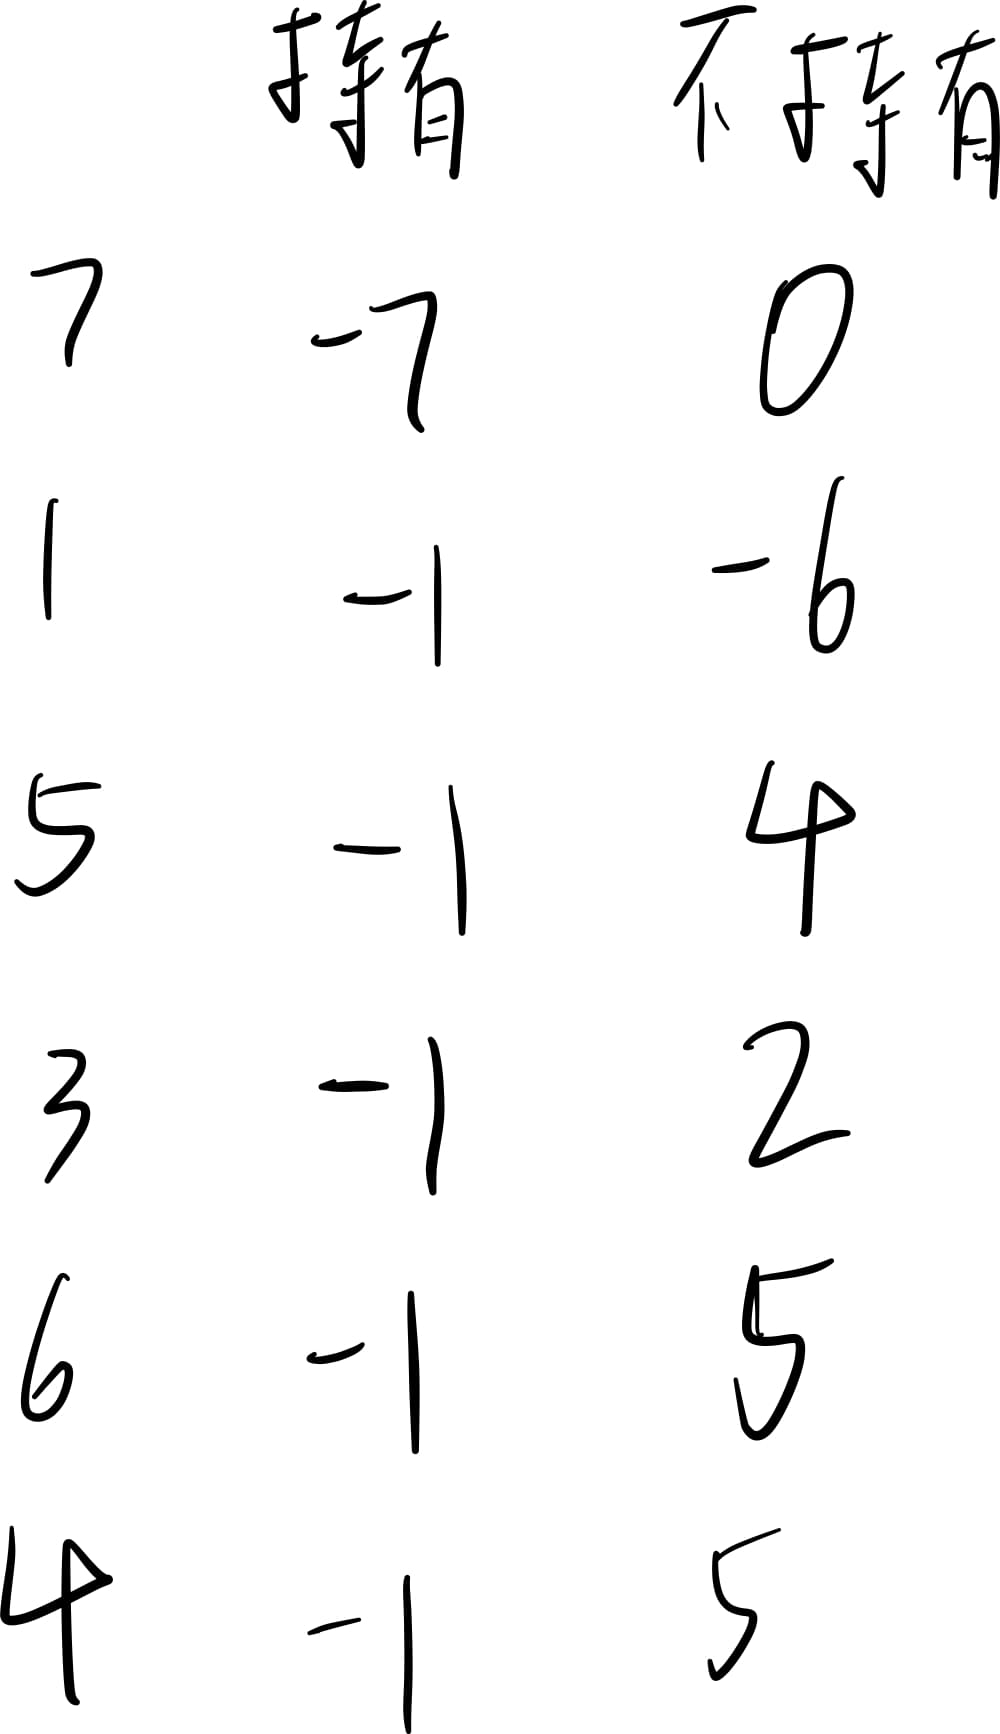 持有 不持有
7 -7 0
1 -1 -6
5 -1 4
3 -1 2
6 -1 5
4 -1 5